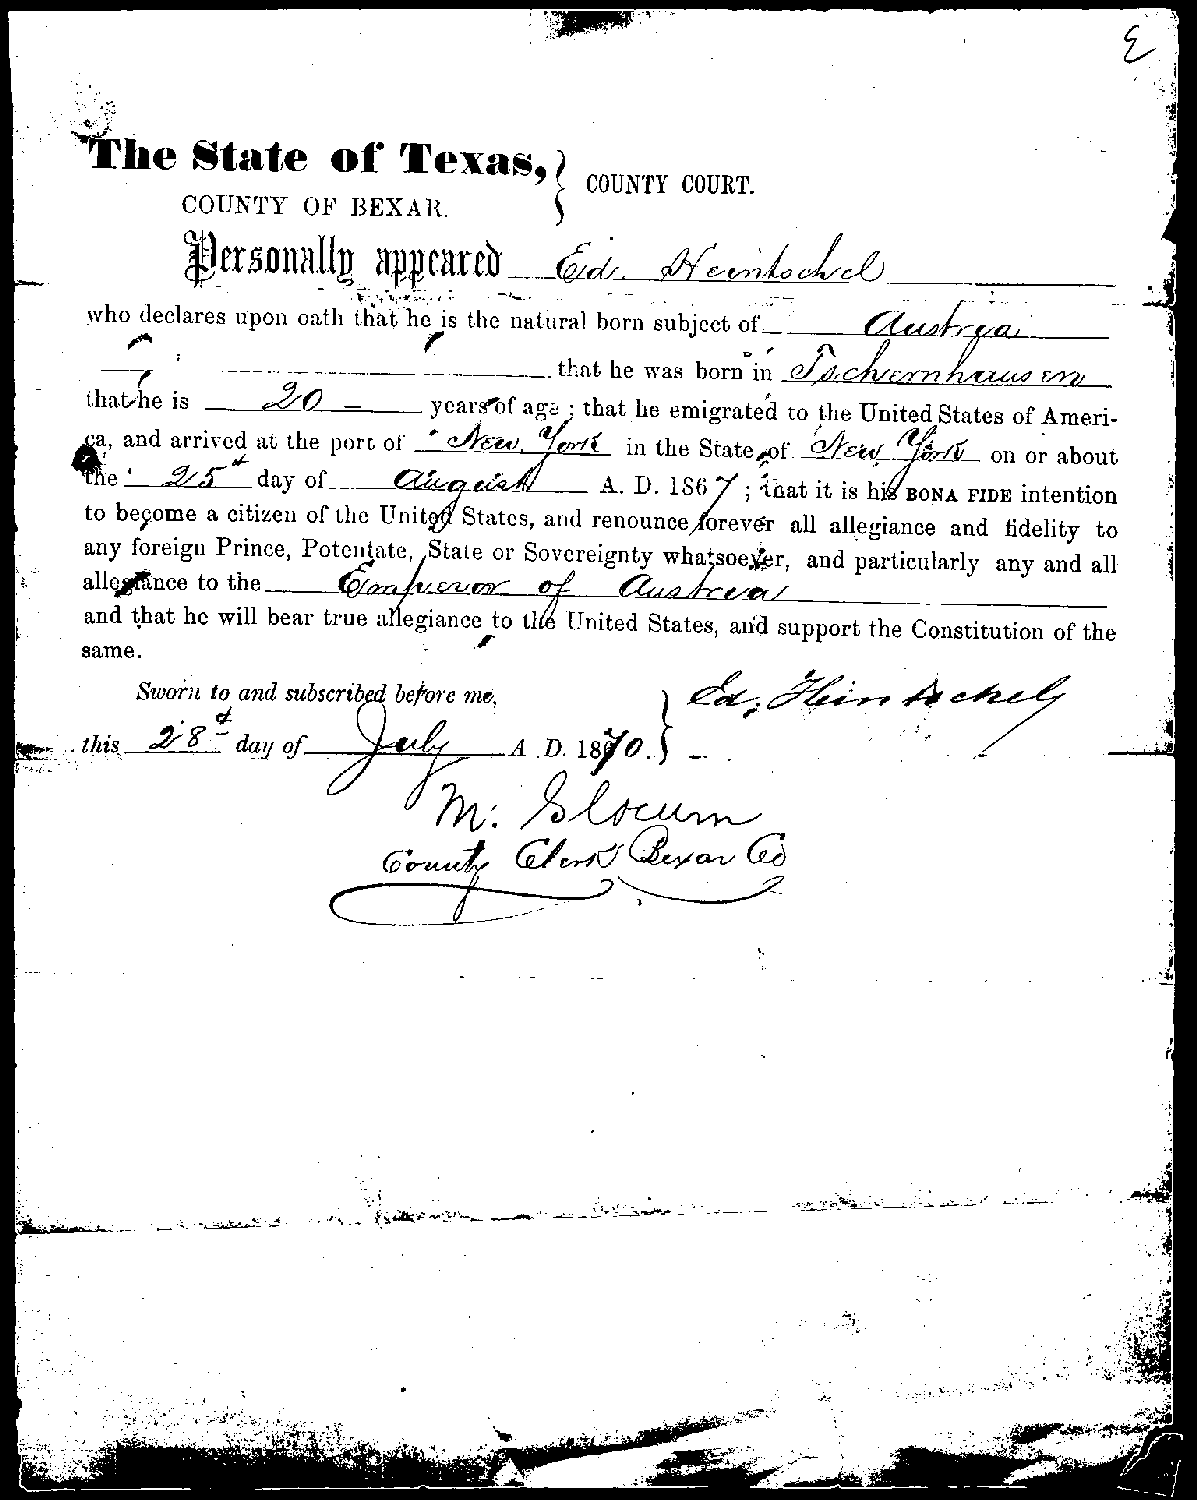 E
The State of Texas, } COUNTY COURT.
COUNTY OF BEXAR.
Personally appeared Ed. Heintschel
who declares upon oath that he is the natural born subject of Austria
that he was born in Tschernhausen
that he is 20 years of age ; that he emigrated to the United States of Ameri-
ca, and arrived at the port of New York in the State of New York on or about
the 25th day of August A. D. 1867 ; that it is his BONA FIDE intention
to become a citizen of the United States, and renounce forever all allegiance and fidelity to
any foreign Prince, Potentate, State or Sovereignty whatsoever, and particularly any and all
allegiance to the Emperor of Austria
and that he will bear true allegiance to the United States, and support the Constitution of the
same.
Sworn to and subscribed before me, } Ed. Heintschel
this 28th day of July A. D. 1870.
M. Slocum
County Clerk Bexar Co